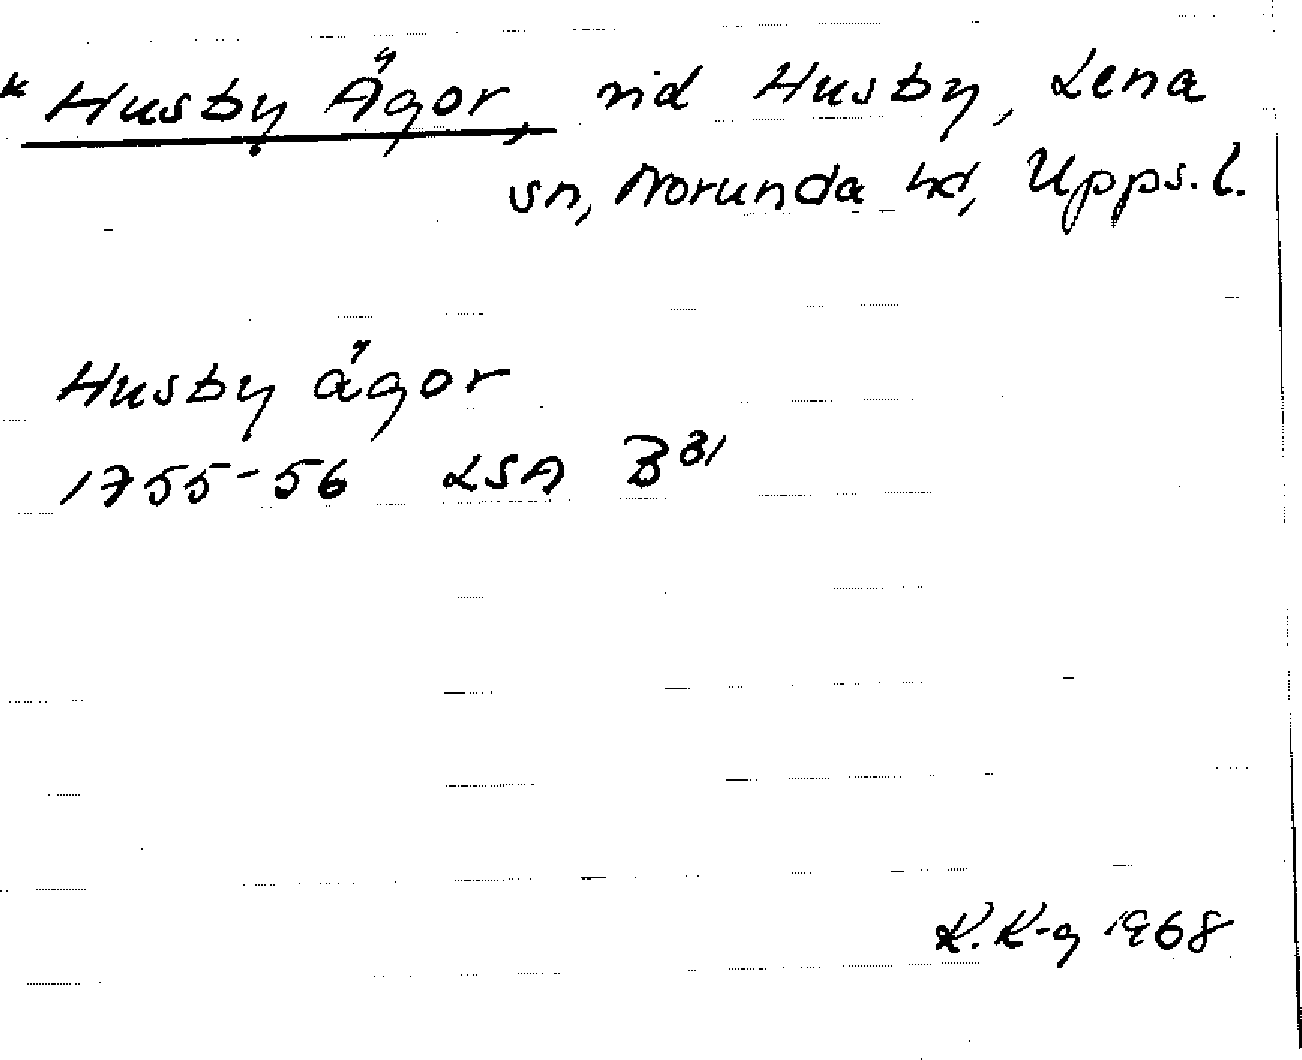 * Husby Ägor, vid Husby, Lena
sn, Norunda hd, Upps. l.
Husby ägor
1755-56 LSA B 31
K. K-g 1968